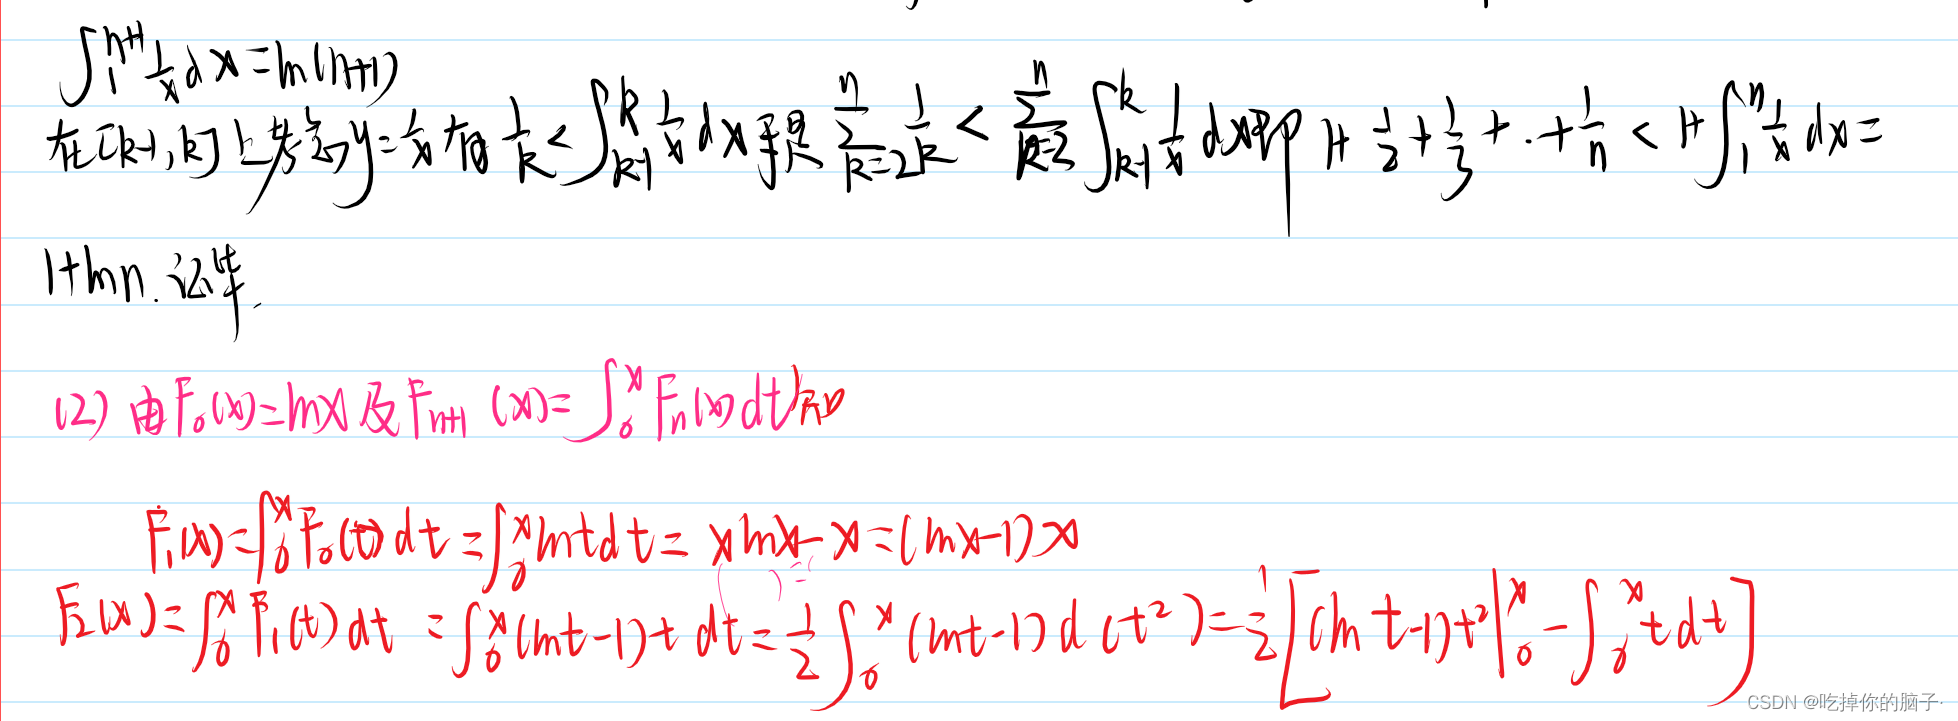 ∫₁ⁿ⁺¹ 1/x dx = ln(n+1)
在[k-1,k]上考虑y=1/x有 1/k < ∫_{k-1}^{k} 1/x dx于是 ∑_{k=2}^{n} 1/k < ∑_{k=2}^{n} ∫_{k-1}^{k} 1/x dx即 1+1/2+1/3+..+1/n < 1+∫₁ⁿ 1/x dx=
1+ln n.证毕.
(2) 由F₀(x)=lnx及F_{n+1}(x)=∫₀ˣ Fₙ(x)dt知
F₁(x)=∫₀ˣ F₀(t)dt=∫₀ˣ lntdt= xlnx-x=(lnx-1)x
F₂(x)=∫₀ˣ F₁(t)dt =∫₀ˣ(lnt-1)t dt=1/2∫₀ˣ (lnt-1)d(t²)=1/2[(ln t-1)t²|₀ˣ-∫₀ˣ tdt]
CSDN @吃掉你的脑子·